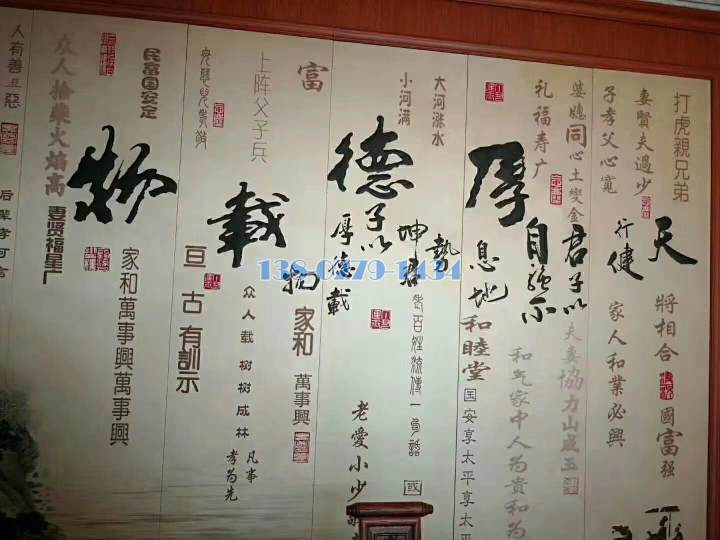 打虎親兄弟
天
將相合
國富强
妻賢夫過少
子孝父心寬
行健
家人和業必興
婆媳同心土變金
君子以
夫妻協力山成玉
礼福寿广
自強不
和气家中人为貴和为
厚
息地
和睦堂
国安享太平享太平
大河涨水
小河满
勢
坤君
老百姓流傳一句話
國
德
子以
厚德載
老愛小少
富
物
家和萬事興
上阵父子兵
載
众人载树树成林
凡事
孝为先
民富国安定
物
亘古有訓示
众人拾柴火焰高
妻贤福星广
家和萬事興萬事興
人有善
惡
后輩孝可言
138 0279 1434